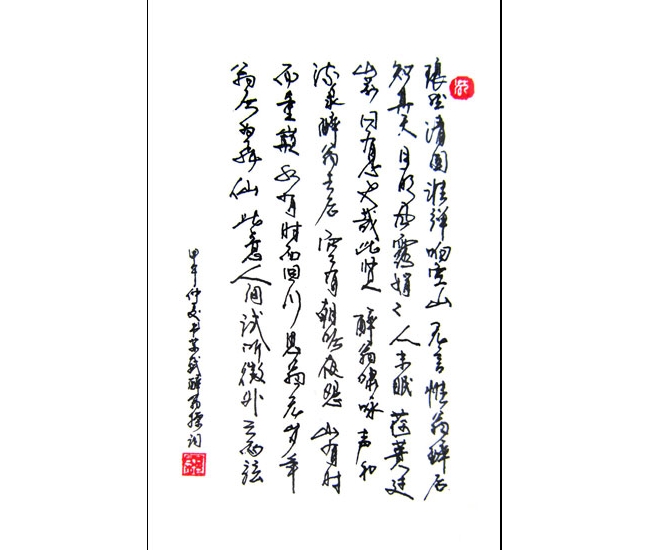 琅然清圆谁弹响空山无言惟翁醉后
知其天月明风露娟々人未眠荷蒉过
山前曰有心也哉此贤醉翁啸咏声和
流泉醉翁去后空有朝吟夜怨山有时
而童巅水有时而回川思翁无岁年
翁今为飞仙此意人间试听徽外三两弦
甲午仲夏书苏轼醉翁操词